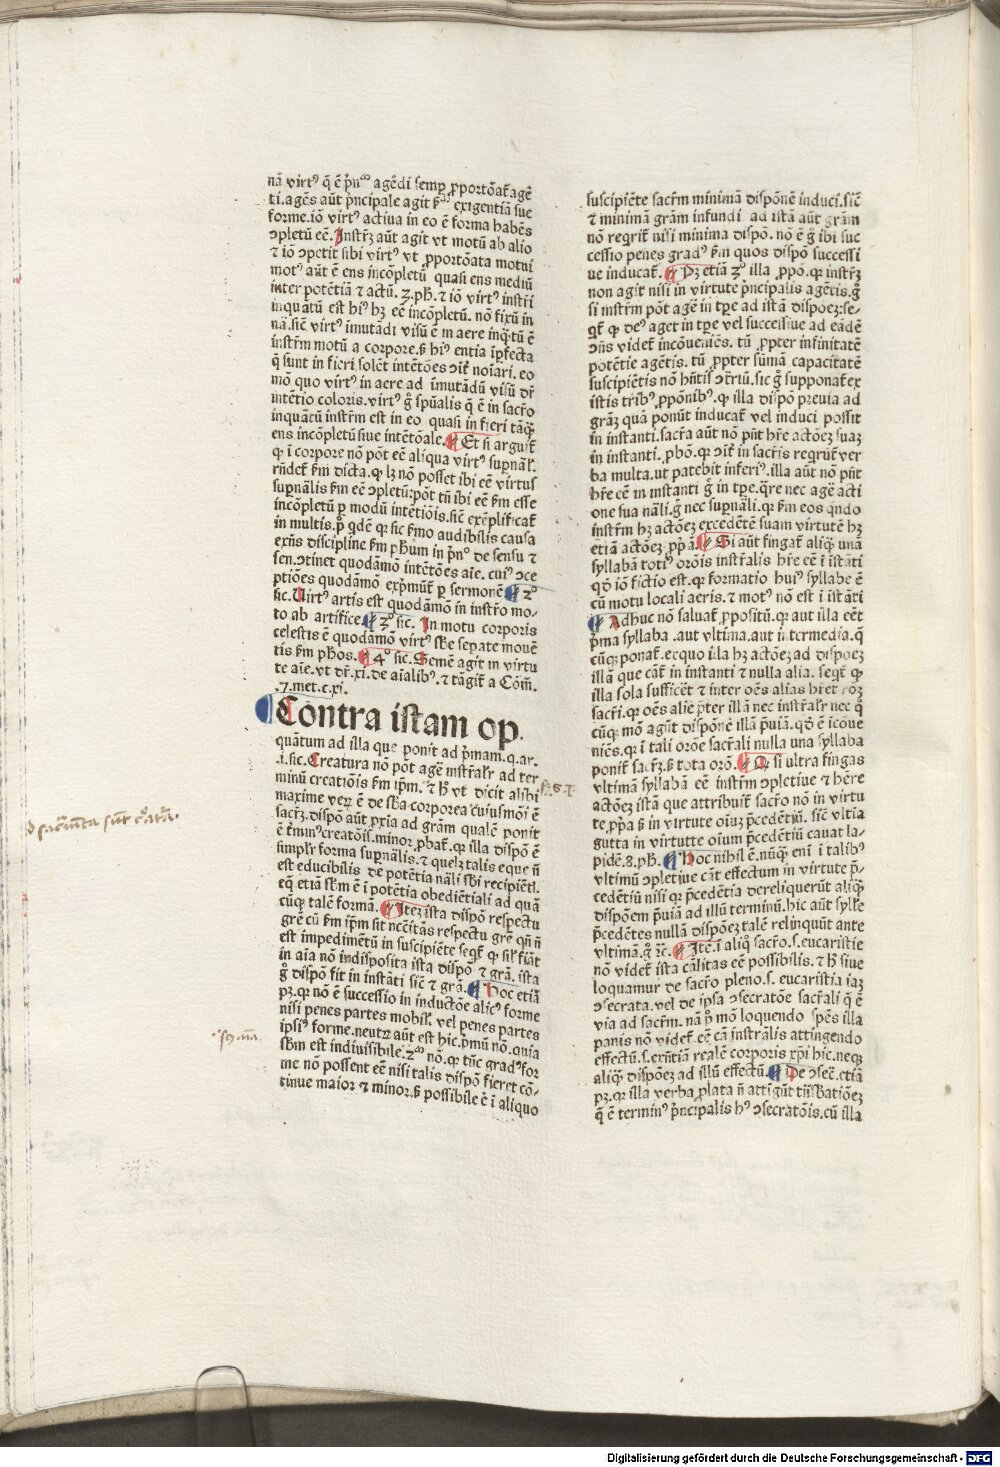 nā virtꝰ q̄ ē p̄nᵐ agēdi semꝑ ꝓportōat̄ agē
ti. agēs aūt p̄ncipale agit ẜm exigentiā sue
forme. iō virtꝰ actiua in eo ē forma habēs
ꝯpletū eē. Instrꝫ aūt agit vt motū ab alio
⁊ iō ꝯpetit sibi virtꝰ vt ꝓportōata motui
motꝰ aūt ē ens incōpletū quasi ens mediū
inter potētiā ⁊ actū. ꝫ. pħ. ⁊ iō virtꝰ instr̄i
inquātū est hiꝰ hꝫ eē incōpletū. nō fixū in
nā. sic̄ virtꝰ īmutādi visū ē in aere inq̄tū ē
instrm̄ motū a corpore. ẜ hiꝰ entia īꝑfecta
q̄ sunt in fieri. solēt intētōes ꝯīt̄ noīari. eo
mō quo virtꝰ in aere ad īmutādū visū dr̄
intētio coloris. virtꝰ g̊ spūalis q̄ ē in sacr̄o
inquātū instrm̄ est in eo quasi in fieri tāq̄ꝫ
ens incōpletū siue intētōale. Et si arguit̄
ꝙ ī corpore nō pōt eē aliqua virtꝰ supr̄nal̄.
rn̄det̄ ẜm dicta. ꝙ lꝫ nō posset ibi eē virtus
supr̄nalis ẜm eē ꝯpletū: pōt tn̄ ibi eē ẜm esse
incōpletū ꝑ modū intētiōis. sic̄ exēplificat̄
in multis. p̊ qdē ꝙ sic ẜmo audibilis causa
exn̄s discipline ẜm pħum in p̄nᵒ de sensu ⁊
sen. ꝯtinet quodāmō intētōes aīe. cuiꝰ ꝯce
ptiōes quodāmō exp̄mūt̄ ꝑ sermonē. 2ᵒ
sic. Virtꝰ artis est quodāmō in instrō mo-
to ab artifice. ꝫᵒ sic̄. In motu corporis
celestis ē quodāmō virtꝰ sb̄e sepate mouē
tis ẜm pħos. 4ᵒ sic. Semē agit in virtu
te aīe. vt dr̄. xi. de aīalibꝰ. ⁊ tāgit̄ a Cōm̄.
.7. met. c. xi.
Contra istam op.
quātum ad illa que ponit ad p̄mam. q. ar.
.i. sic. Creatura nō pōt agē instrāl̄r ad ter
minū creatiōis ẜm ip̄m. ⁊ ħ vt dicit alibi
maxime veꝝ ē de sb̄a corporea cuiusmōi ē
sacrꝫ. dispō aūt ꝓxia ad grām qualē ponit
ē t̄minꝰ creatōis. minor ꝓbat̄. qꝛ illa dispō ē
simpl̄r forma supr̄nalis. ⁊ quelꝫ talis eque n̄
est educibilis de potētia nāli sb̄i recipiētl.
eq̄ etiā sl̄m ē ī potētia obediētiali ad quā
cūqꝫ talē formā. Iteꝫ ista dispō respectu
grē cū ẜm ip̄m sit nēcitās respectu grē qn̄ n̄
est impedimētū in suscipiēte seqt̄ ꝙ sil̄ fiāt
in aīa nō indisposita ista dispō ⁊ grā. ista
g̊ dispō fit in instāti sic̄ ⁊ grā. Hoc etiā
pꝫ. qꝛ nō ē successio in inductōe alicꝰ forme
nisi penes partes mobil̄. vel penes partes
ipsiꝰ forme. neutrꝫ aūt est hic. p̄mū nō. quia
sb̄m est indiuisibile. 2ᵐ nō. qꝛ tūc gradꝰ for
me nō possent eē nisi talis dispō fieret cō-
tinue maior ⁊ minor. ẜ possibile ē ī aliquo
suscipiēte sacrm̄ minimā dispōnē induci. sic̄
⁊ minimā grām infundi ad istā aūt grām
nō reqrit̄ nisi minima dispō. nō ē g̊ ibi suc
cessio penes gradꝰ ẜm quos dispō successi
ue inducat̄. Pꝫ etiā ꝫᵒ illa ꝓpō. qꝛ instrꝫ
non agit nisi in virtute p̄ncipalis agētis. g̊
si instrm̄ pōt agē in tꝑe ad istā dispoeꝫ: se-
qt̄ ꝙ deꝰ aget in tꝑe vel successiue ad eādē
ꝯn̄s videt̄ incōueniēs. tū ꝓpter infinitatē
potētie agētis. tū ꝓpter sūmā capacitatē
suscipiētis nō hn̄tis ꝯtr̄iū. sic g̊ supponat̄ ex
istis tribꝰ ꝓpōnibꝰ. ꝙ illa dispō preuia ad
grāꝫ quā ponūt inducat̄ vel induci possit
in instanti. sacr̄a aūt nō pn̄t hr̄e actōeꝫ suaꝫ
in instanti. ꝓbō. qꝛ ꝯīt̄ in sacr̄is reqrūt̄ ver
ba multa. ut patebit inferiꝰ. illa aūt nō pn̄t
hr̄e eē in instanti g̊ in tꝑe. q̄re nec agē acti
one sua nāli. g̊ nec supr̄nāli. qꝛ ẜm eos qn̄do
instrm̄ hꝫ actōeꝫ excedētē suam virtutē hꝫ
etiā actōeꝫ ꝓp̄ā. Si aūt fingat̄ aliq̄ una
syllabā totiꝰ orōis instr̄alis hr̄e eē ī īstāti
qd̊ iō fictio est. qꝛ formatio huiꝰ syllabe ē
cū motu locali aeris. ⁊ motꝰ nō est ī īstāti
Adhuc nō saluat̄ ꝓpositū. qꝛ aut illa eēt
p̄ma syllaba. aut vltima. aut īntermedia. q̄
cūqꝫ ponat̄. ex quo illa hꝫ actōeꝫ ad dispoeꝫ
illā que cāt̄ in instanti ⁊ nulla alia. seqt̄ ꝙ
illa sola sufficēt ⁊ inter oēs alias hr̄et roꝫ
sacr̄i. qꝛ oēs alie p̄ter illā nec instrāl̄r nec q̄
cūqꝫ mō agūt dispōnē illā p̄uiā. qd̊ ē icōue
niēs. qꝛ ī tali orōe sacr̄ali nulla una syllaba
ponit̄ sacrꝫ. ẜ tota orō. Qꝛ si ultra fingas
vltimā syllabā eē instrm̄ ꝯpletiue ⁊ hēre
actōeꝫ istā que attribuit̄ sacr̄o nō in virtu
te ꝓp̄a ẜ in virtute oīuꝫ p̄cedētiū. sic̄ vltīa
gutta in virtutte oīum p̄cedētiū cauat la-
pidē. 8. pħ. Hoc nihil ē. nūq̄ꝫ eni ī talibꝰ
vltimū ꝯpletiue cāt effectum in virtute p̄-
cedētiū nisi qꝛ p̄cedētia dereliquerūt aliq̄ꝫ
dispōem p̄uiā ad illū terminū. hic aūt syll̄e
p̄cedētes nullā dispōeꝫ talē relinquūt ante
vltimā. g̊ ⁊c. Itē. ī aliq̊ sacr̄o. s. eucaristie
nō videt̄ ista cālitas eē possibilis. ⁊ ħ siue
loquamur de sacr̄o pleno. s. eucaristia iaꝫ
ꝯsecrata. vel de ipsa ꝯsecratōe sacr̄ali q̄ ē
via ad sacrm̄. nā p̊ mō loquendo spēs illa
panis nō videt̄ eē cā instrālis attingendo
effectū. s. exn̄tiā realē corporis xp̄i hic. neqꝫ
aliq̄ dispōeꝫ ad illū effectū. De ꝯsec̄. etiā
pꝫ. qꝛ illa verba ꝓlata n̄ attigūt trāssb̄atiōeꝫ
q̄ ē terminꝰ p̄ncipalis hꝰ ꝯsecratōis. cū illa
Digitalisierung gefördert durch die Deutsche Forschungsgemeinschaft - DFG